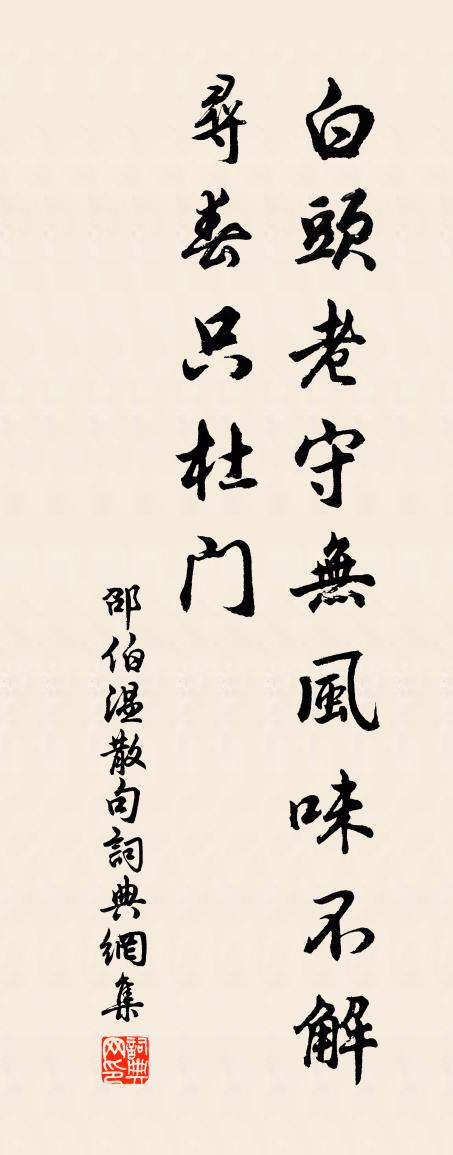 白頭老守無風味不解
尋春只杜门
邵伯温散句詞典網集
詞典网印